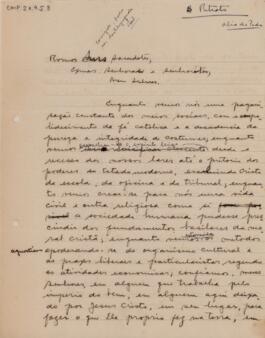 CMP.2.0.9.53
Revmos Snrs Sacerdotes,
Exmas Senhoras e Senhoritas,
Meus Senhores.
Enquanto vemos nós uma pagani-
sação constante dos meios sociais, com o empa-
lidecimento da fé católica e a decadencia da
pureza e integridade de costumes; enquanto
vemos desde o
recesso dos nossos lares até o pretorio dos
poderes do Estado moderno, excluindo Cristo
da escola, da oficina e do tribunal, enquan-
to vemos crear-se para nós uma vida
civil e outra religiosa como si
a sociedade humana pudesse pres-
cindir dos fundamentos basilares da mo-
ral cristã, enquanto vemos os metodos
apoderando-se do organismo cultural e
da praxis liberais e particularistas regendo
as atividades economicas, confiamos, meus
Senhores em alguem que trabalha pelo
imperio do bem, em alguem aqui deixa-
do por Jesus Cristo, em seu lugar, para
fazer o que Ele proprio fez na terra, em